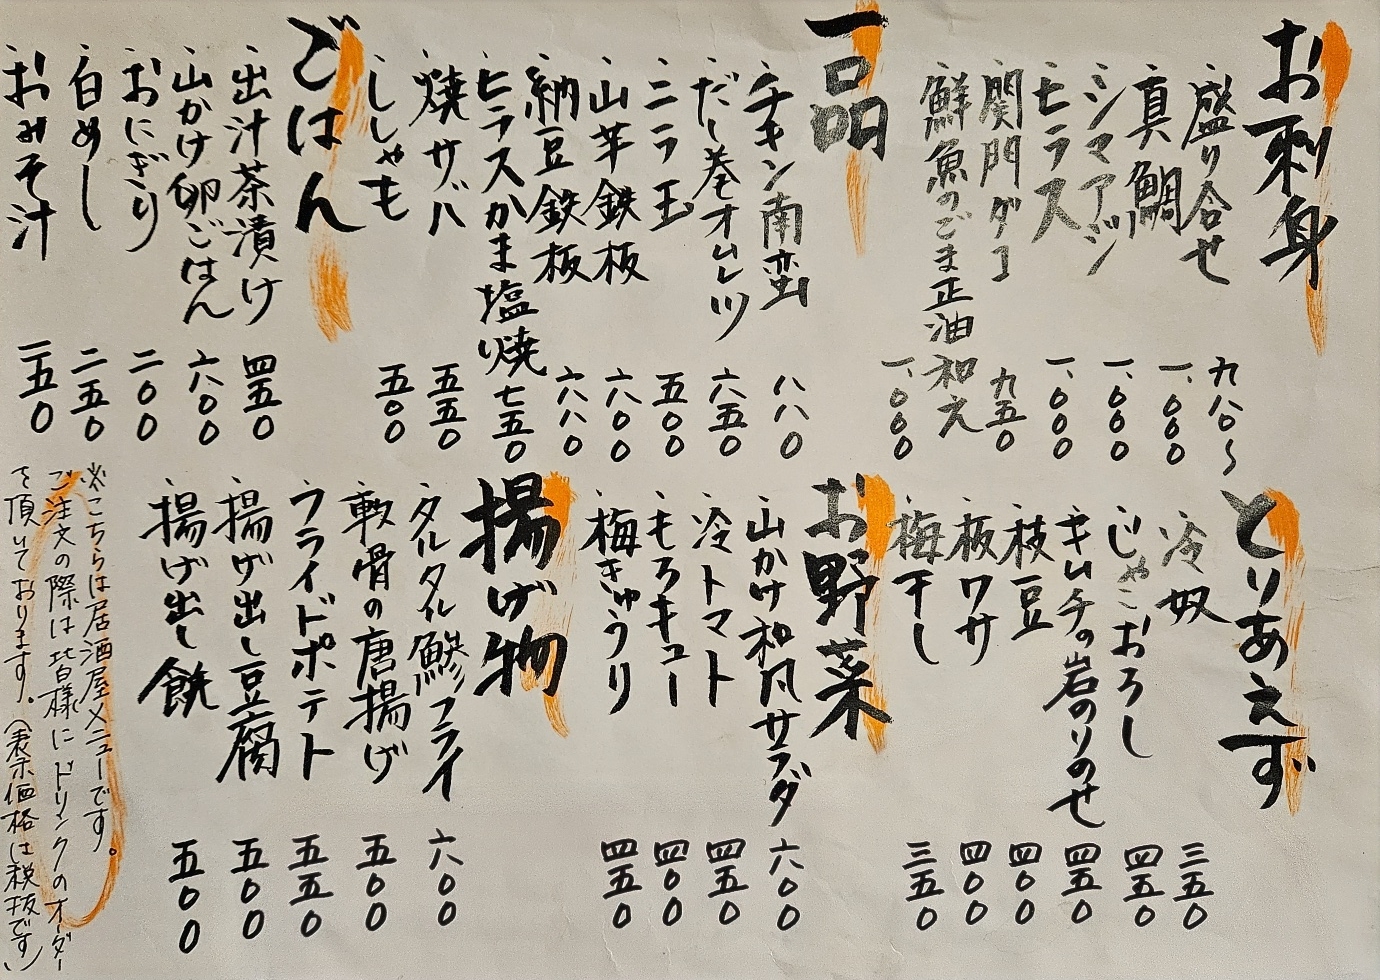 お刺身
・盛り合せ 九八〇〜
・真鯛 一、〇〇〇
・シマアジ 一、〇〇〇
・ヒラス 一、〇〇〇
・関門ダコ 九五〇
・鮮魚のごま正油和え 一、〇〇〇
一品
・チキン南蛮 八八〇
・だし巻オムレツ 六五〇
・ニラ玉 五〇〇
・山芋鉄板 六〇〇
・納豆鉄板 六八〇
・ヒラスかま塩焼 七五〇
・焼サバ 五五〇
・ししゃも 五〇〇
ごはん
・出汁茶漬け 四五〇
・山かけ卵ごはん 六〇〇
・おにぎり 二〇〇
・白めし 二五〇
・おみそ汁 二五〇
とりあえず
・冷奴 三五〇
・じゃこおろし 四五〇
・キムチの岩のりのせ 四五〇
・枝豆 四〇〇
・板ワサ 四〇〇
・梅干し 三五〇
お野菜
・山かけ和風サラダ 六〇〇
・冷トマト 四五〇
・もろキュー 四〇〇
・梅きゅうり 四五〇
揚げ物
・タルタル鯵フライ 六〇〇
・軟骨の唐揚げ 五〇〇
・フライドポテト 五五〇
・揚げ出し豆腐 五〇〇
・揚げ出し餅 五〇〇
※こちらは居酒屋メニューです。
ご注文の際は皆様にドリンクのオーダー
を頂いております。(表示価格は税抜です)